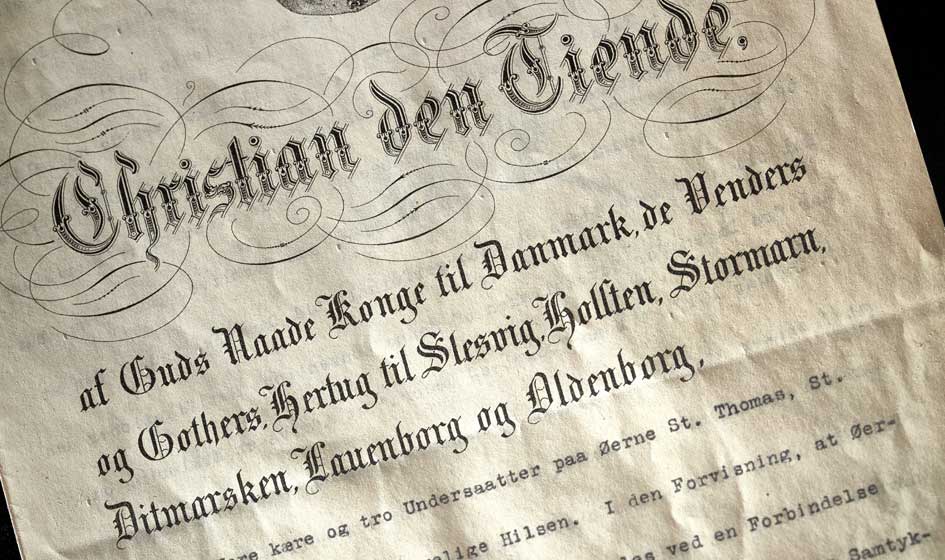 Christian den Tiende,
af Guds Naade Konge til Danmark, de Venders
og Gothers, Hertug til Slesvig, Holsten, Stormarn,
Ditmarsken, Lauenborg og Oldenborg,
kære og tro Undersaatter paa Øerne St. Thomas, St.
Hilsen. I den Forvisning, at Øer-
ved en Forbindelse
Samtyk-